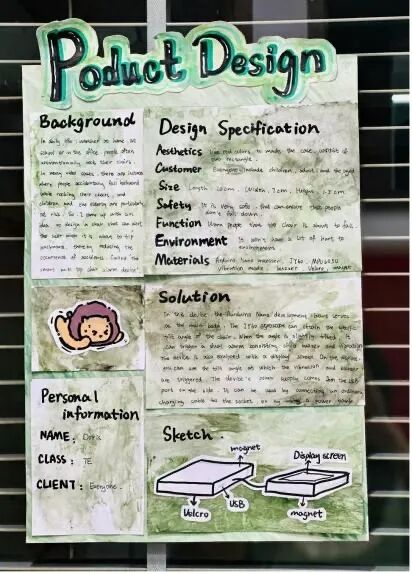 Poduct Design
Background
In daily life, whether at home, at
school or in the office, people often
unintentionally rock their chairs.
In many video cases, there are
where people accidentally fall backward
while rocking their chairs, and
children and the elderly are particularly
at risk. So I came up with an
idea: we design a chair that can alert
the user when it is about to tip
backward, thereby reducing the
occurrence of accidents. Called the
smart anti tip chair alarm device
Design Specification
Aesthetics Use colors to made the case, consist of
two rectangle.
Customer Everyone include children, adult, and the
Size Length Width Height
Safety It is very safe, and can ensure that people
don't fall down.
Function Warn people that the chair is about to fall
Environment It don't have a lot of hurt to
environment.
Materials Arduino Nano JY60, MPU6050
Vibration buzzer, Velcro, magnet
Solution
In this device, the Arduino Nano development board serves
as the main body. The JY60 gyroscope can obtain the
tilt angle of the chair. When the angle is slightly tilted, it
can trigger a alarm consisting of buzzer and vibration.
The device is also equipped with a display screen. On the screen,
you can see the tilt angle at which the vibration and buzzer
are triggered. The device's power supply comes from the USB
port on the side. It can be used by connecting an ordinary
charging cable to the socket or by using a power bank
Personal
information
NAME: Doris
CLASS: 7E
CLIENT: Everyone.
Sketch
magnet
Display screen
Velcro
USB
magnet